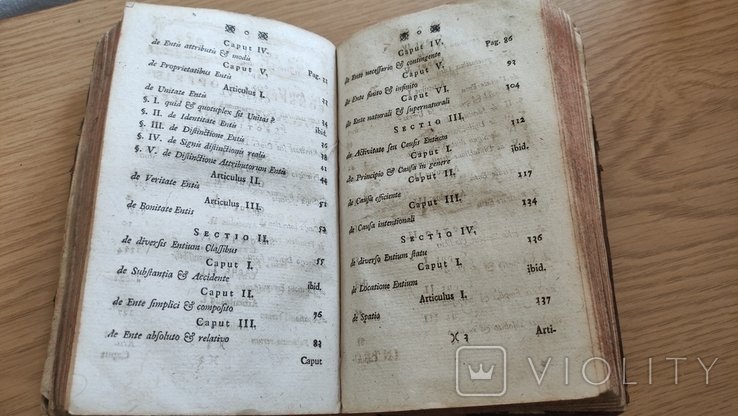 Caput IV.
de Entis attributis & modis Pag. 21
Caput V.
de Proprietatibus Entis
Articulus I.
de Unitate Entis
§. I. quid & quotuplex sit Unitas?
§. II. de Identitate Entis ibid.
§. III. de Distinctione Entis
§. IV. de Signis distinctionis realis
§. V. de Distinctione Attributorum Entis
Articulus II. 44
de Veritate Entis
Articulus III.
de Bonitate Entis 52
SECTIO II.
de diversis Entium Classibus 55
Caput I.
de Substantia & Accidente ibid.
Caput II.
de Ente simplici & composito
Caput III.
de Ente absoluto & relativo 83
Caput
Caput IV.
de Ente necessario & contingente Pag. 86
Caput V.
de Ente finito & infinito 93
Caput VI.
de Ente naturali & supernaturali 104
SECTIO III.
de Activitate seu Causis Entium 112
Caput I.
de Principio & Causa in genere ibid.
Caput II.
de Causa efficiente 117
Caput III.
de Causa intentionali 134
SECTIO IV.
de diverso Entium statu 136
Caput I.
de Locatione Entium ibid.
Articulus I.
de Spatio 137
Arti-
VIOLITY